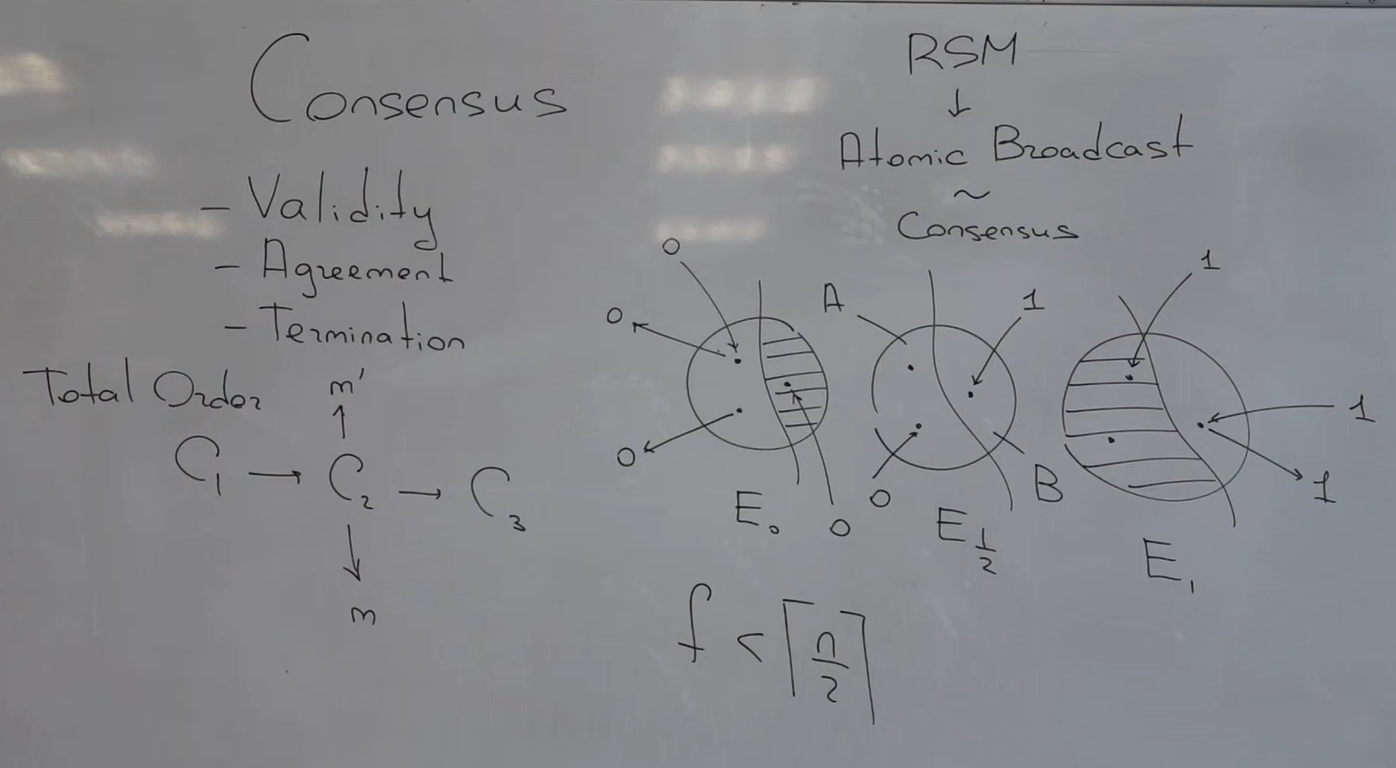 Consensus
- Validity
- Agreement
- Termination
Total Order
m'
↑
C₁ → C₂ → C₃
↓
m
RSM
↓
Atomic Broadcast
~
Consensus
0
0
0
E₀
0
A
1
0
B
E½
1
1
1
E₁
f < ⌈n/2⌉